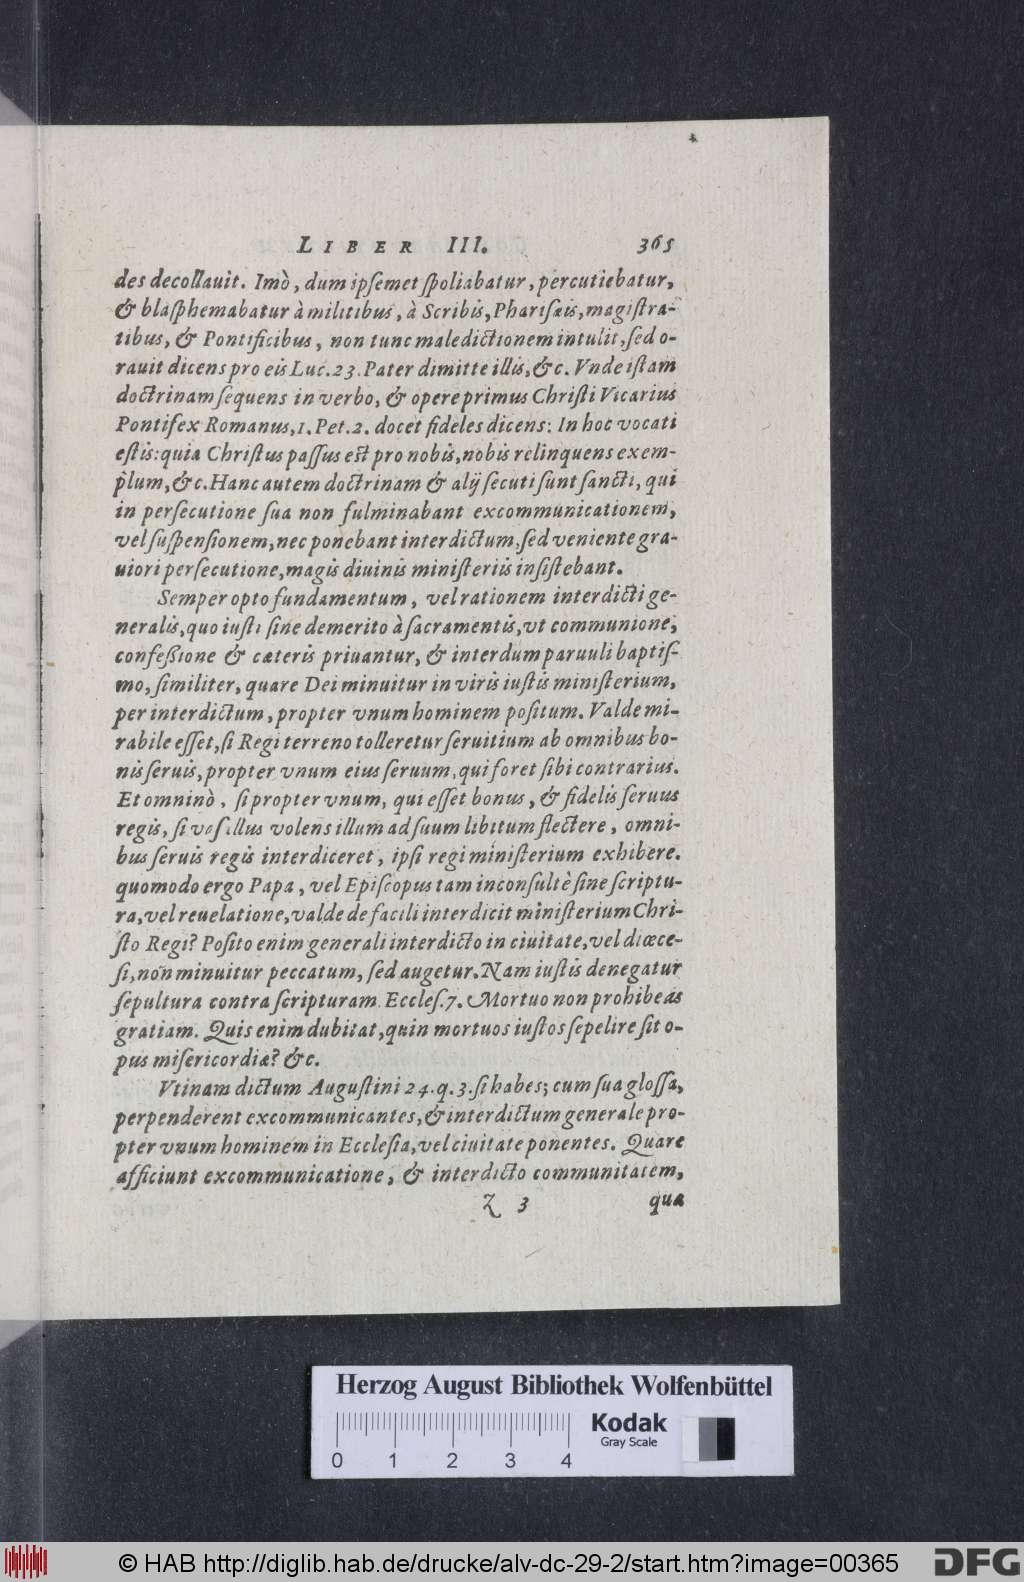 LIBER III. 365
des decollauit. Imò, dum ipſemet ſpoliabatur, percutiebatur,
& blaſphemabatur à militibus, à Scribis, Phariſæis, magiſtra-
tibus, & Pontificibus, non tunc maledictionem intulit, ſed o-
rauit dicens pro eis Luc. 23. Pater dimitte illis, &c. Vnde iſtam
doctrinam ſequens in verbo, & opere primus Chriſti Vicarius
Pontifex Romanus, 1. Pet. 2. docet fideles dicens: In hoc vocati
eſtis: quia Chriſtus paſſus eſt pro nobis, nobis relinquens exem-
plum, &c. Hanc autem doctrinam & alij ſecuti ſunt ſancti, qui
in perſecutione ſua non fulminabant excommunicationem,
vel ſuſpenſionem, nec ponebant interdictum, ſed veniente gra-
uiori perſecutione, magis diuinis miniſteriis inſiſtebant.
Semper opto fundamentum, vel rationem interdicti ge-
neralis, quo iuſti ſine demerito à ſacramentis, vt communione,
confeßione & cæteris priuantur, & interdum paruuli baptiſ-
mo, ſimiliter, quare Dei minuitur in viris iuſtis miniſterium,
per interdictum, propter vnum hominem poſitum. Valde mi-
rabile eſſet, ſi Regi terreno tolleretur ſeruitium ab omnibus bo-
nis ſeruis, propter vnum eius ſeruum, qui foret ſibi contrarius.
Et omninò, ſi propter vnum, qui eſſet bonus, & fidelis ſeruus
regis, ſi vaſillus volens illum ad ſuum libitum flectere, omni-
bus ſeruis regis interdiceret, ipſi regi miniſterium exhibere.
quomodo ergo Papa, vel Epiſcopus tam inconſultè ſine ſcriptu-
ra, vel reuelatione, valde de facili interdicit miniſterium Chri-
ſto Regi? Poſito enim generali interdicto in ciuitate, vel diœce-
ſi, non minuitur peccatum, ſed augetur. Nam iuſtis denegatur
ſepultura contra ſcripturam Eccleſ. 7. Mortuo non prohibeas
gratiam. Quis enim dubitat, quin mortuos iuſtos ſepelire ſit o-
pus miſericordiæ? &c.
Vtinam dictum Auguſtini 24. q. 3. ſi habes; cum ſua gloſſa,
perpenderent excommunicantes, & interdictum generale pro-
pter vnum hominem in Eccleſia, vel ciuitate ponentes. Quare
afficiunt excommunicatione, & interdicto communitatem,
Z 3 qua
Herzog August Bibliothek Wolfenbüttel
Kodak
Gray Scale
0 1 2 3 4
© HAB http://diglib.hab.de/drucke/alv-dc-29-2/start.htm?image=00365 DFG